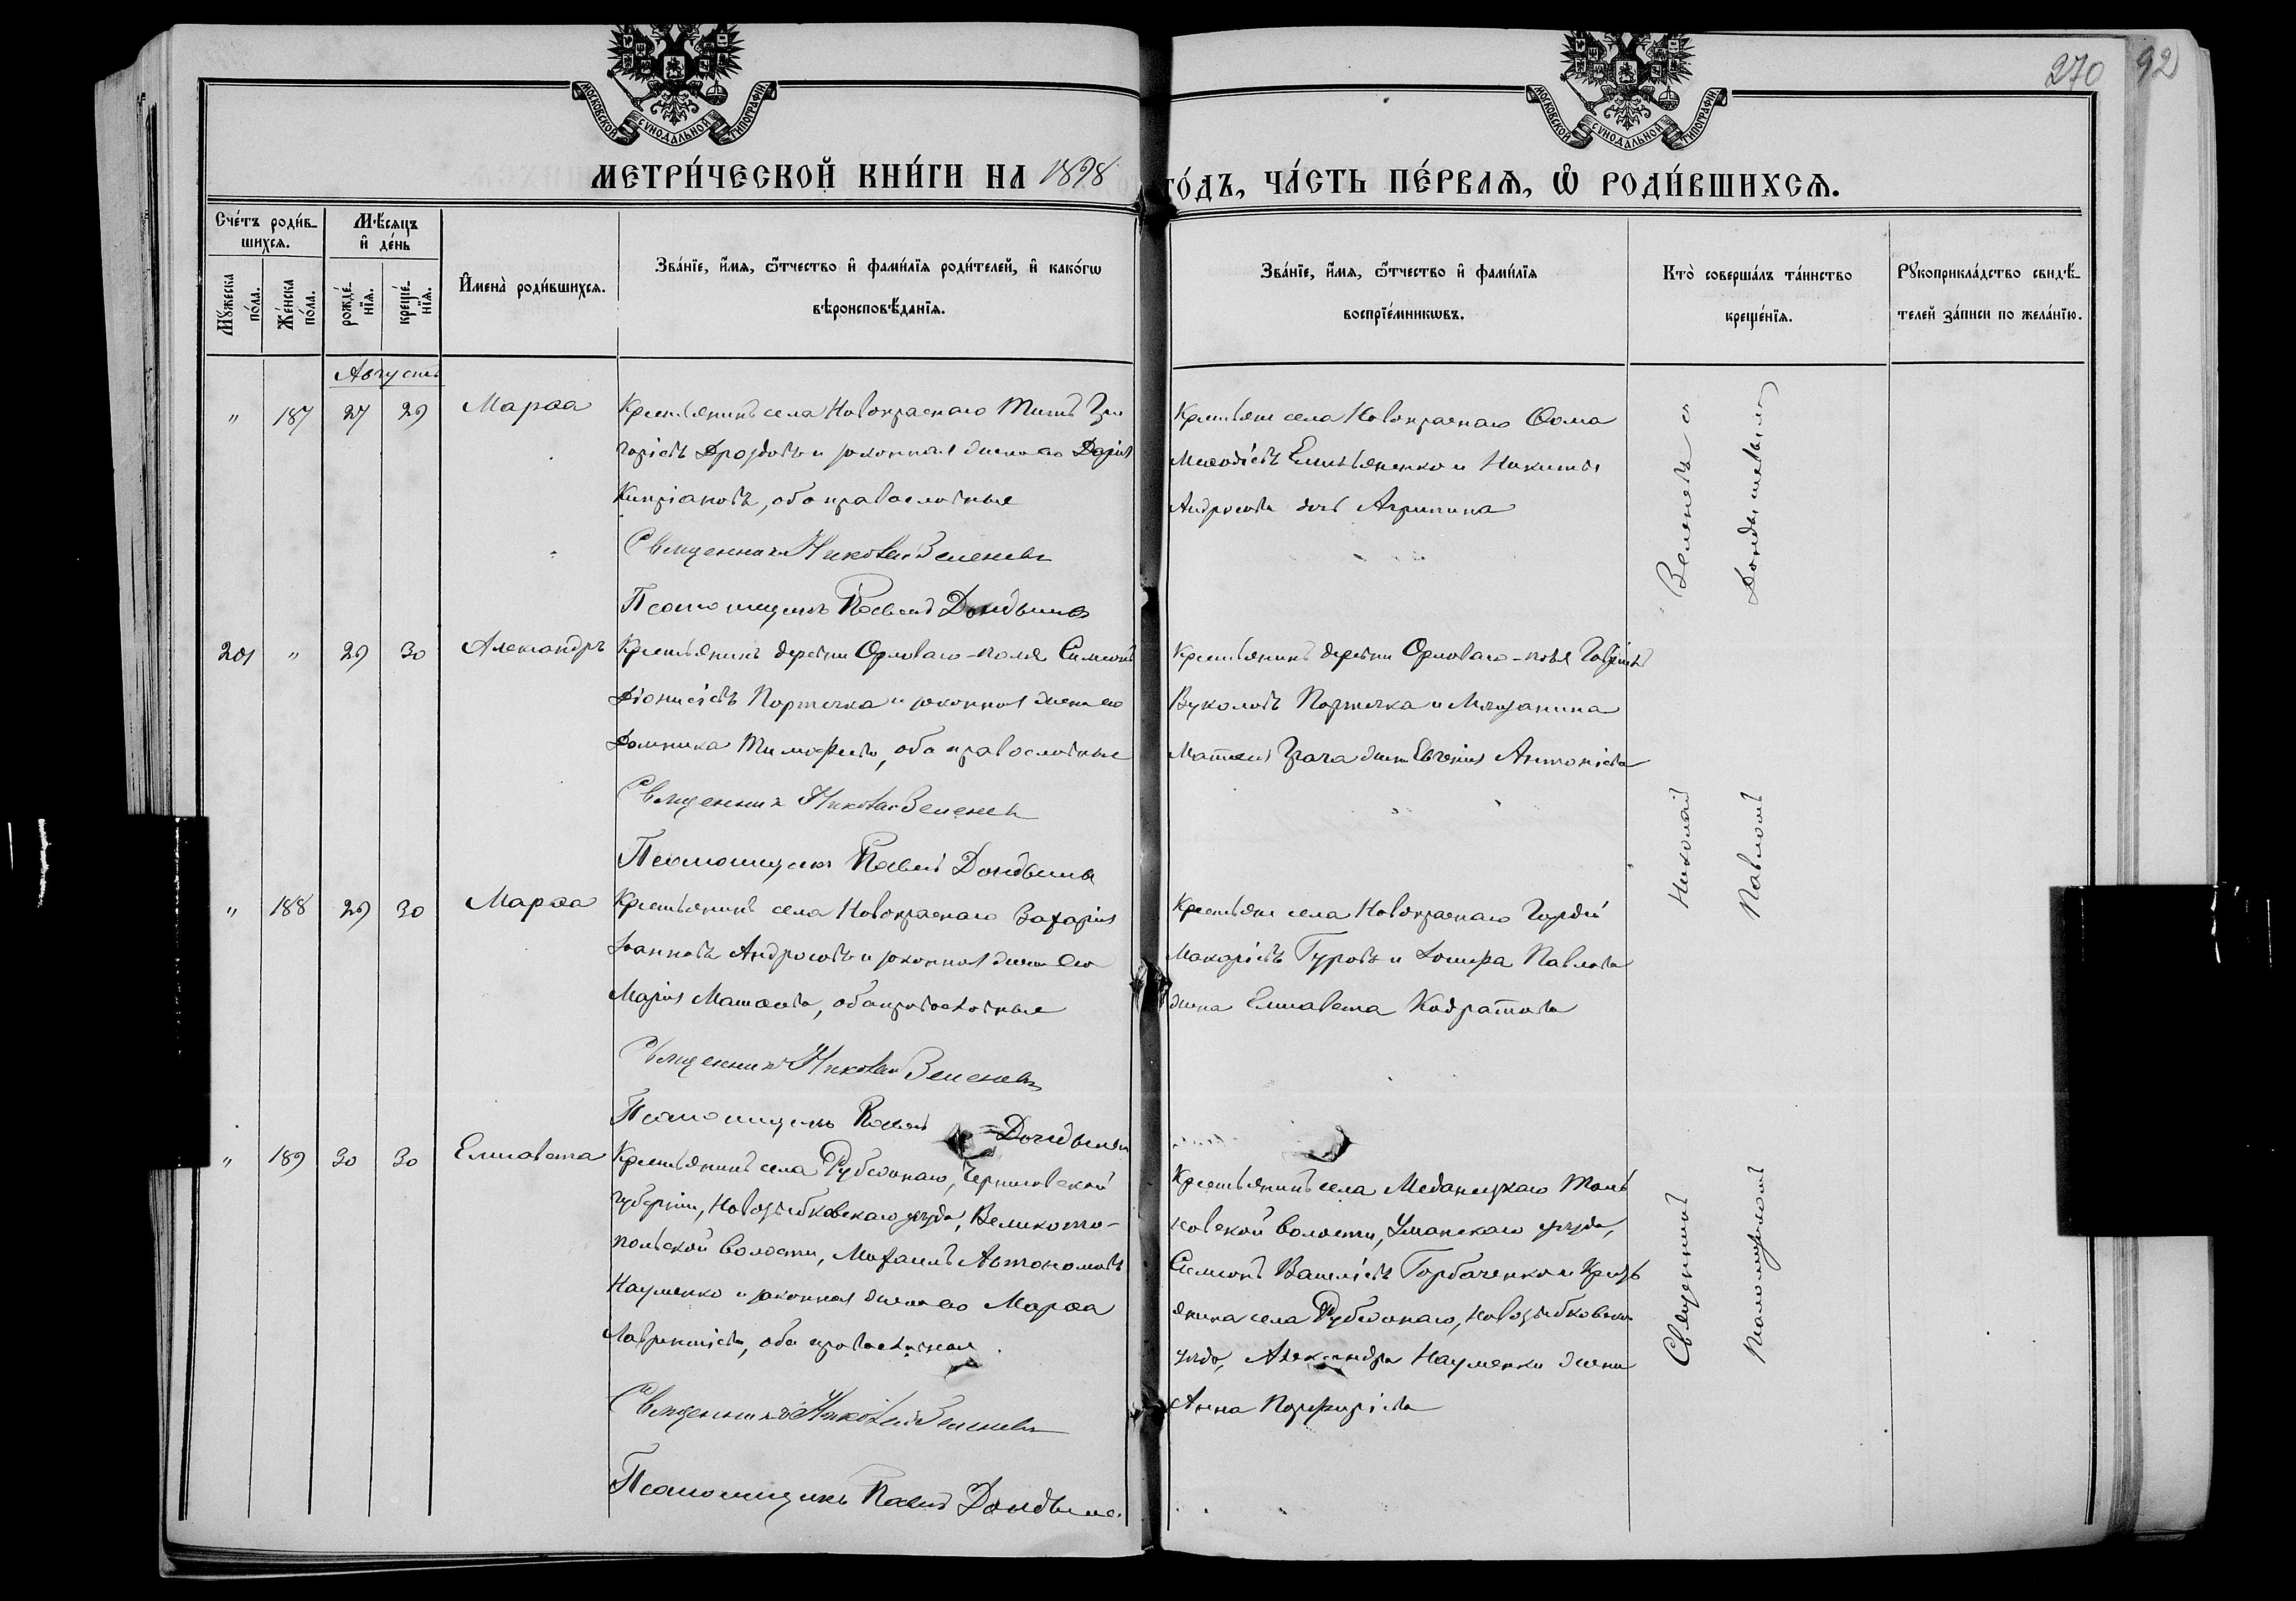 270 92
МОСКОВСКОЙ СУНОДАЛЬНОЙ ТИПОГРАФІИ
МОСКОВСКОЙ СУНОДАЛЬНОЙ ТИПОГРАФІИ
МЕТРИ́ЧЕСКОЙ КНИ́ГИ НА 1898 ГО́ДЪ, ЧА́СТЬ ПЕ́РВАѦ, Ѡ РОДИ́ВШИХСѦ.
Сче́тъ роди́в-
шихсѧ.
Мꙋжеска по́ла.
Же́нска по́ла.
Мѣсѧцъ и де́нь
рожде́нїѧ.
креще́нїѧ.
Имена̀ роди́вшихсѧ.
Зва́нїе, и́мѧ, ѿтчество и фами́лїѧ роди́телей, и како́гѡ
вѣроисповѣданїѧ.
Зва́нїе, и́мѧ, ѿтчество и фами́лїѧ
воспрїе́мникѡвъ.
Кто̀ соверша́лъ та́инство
креще́нїѧ.
Рꙋкоприкла́дство свидѣ́-
телей за́писи по жела́нїю.
Августъ
" 187 27 29 Марѳа
Крестьянинъ села Новокраснаго Титъ Гри
горіевъ Дроздовъ и законная жена его Дарія
Кипріанова, оба православные
Священникъ Николай Зеленевъ
Псаломщикъ Павелъ
Крестьяне села Новокраснаго Ѳома
Меѳодіевъ Емельяненко и Никиты
Андросова дочь Агрипина
201 " 29 30 Александръ
Крестьянинъ деревни Орловаго-поля Симеонъ
Діонисіевъ Портечка и законная жена его
Домника Тимофеева, оба православные
Священникъ Николай Зеленевъ
Псаломщикъ Павелъ
Крестьянинъ деревни Орловаго-поля Гавріилъ
Вуколовъ Портечка и Мѣщанина
Матѳея Грача жена Евгенія Антоніева
" 188 29 30 Марѳа
Крестьянинъ села Новокраснаго Захарія
Іоанновъ Андросовъ и законная жена его
Марія Матѳеева, оба православные
Священникъ Николай Зеленевъ
Псаломщикъ Павелъ
Крестьяне села Новокраснаго Гордій
Макаріевъ Гуровъ и Іосифа Павлова
жена Елисавета Кодратова
" 189 30 30 Елисавета
Крестьянинъ села Черниговской
губерніи, Новозыбковскаго уѣзда, Великото-
польской волости, Михаилъ Автономовъ
Науменко и законная жена его Марѳа
Лаврентіева, оба православные.
Священникъ Николай Зеленевъ
Псаломщикъ Павелъ
Крестьянинъ села Таль
новской волости, Уманскаго уѣзда,
Симеонъ Василіевъ Горбаченко и Кресть
янина села Новозыбковскаго
уѣзда, Александра Науменки жена
Анна Порфиріева
Священникъ Николай Зеленевъ съ
Псаломщикомъ Павломъ